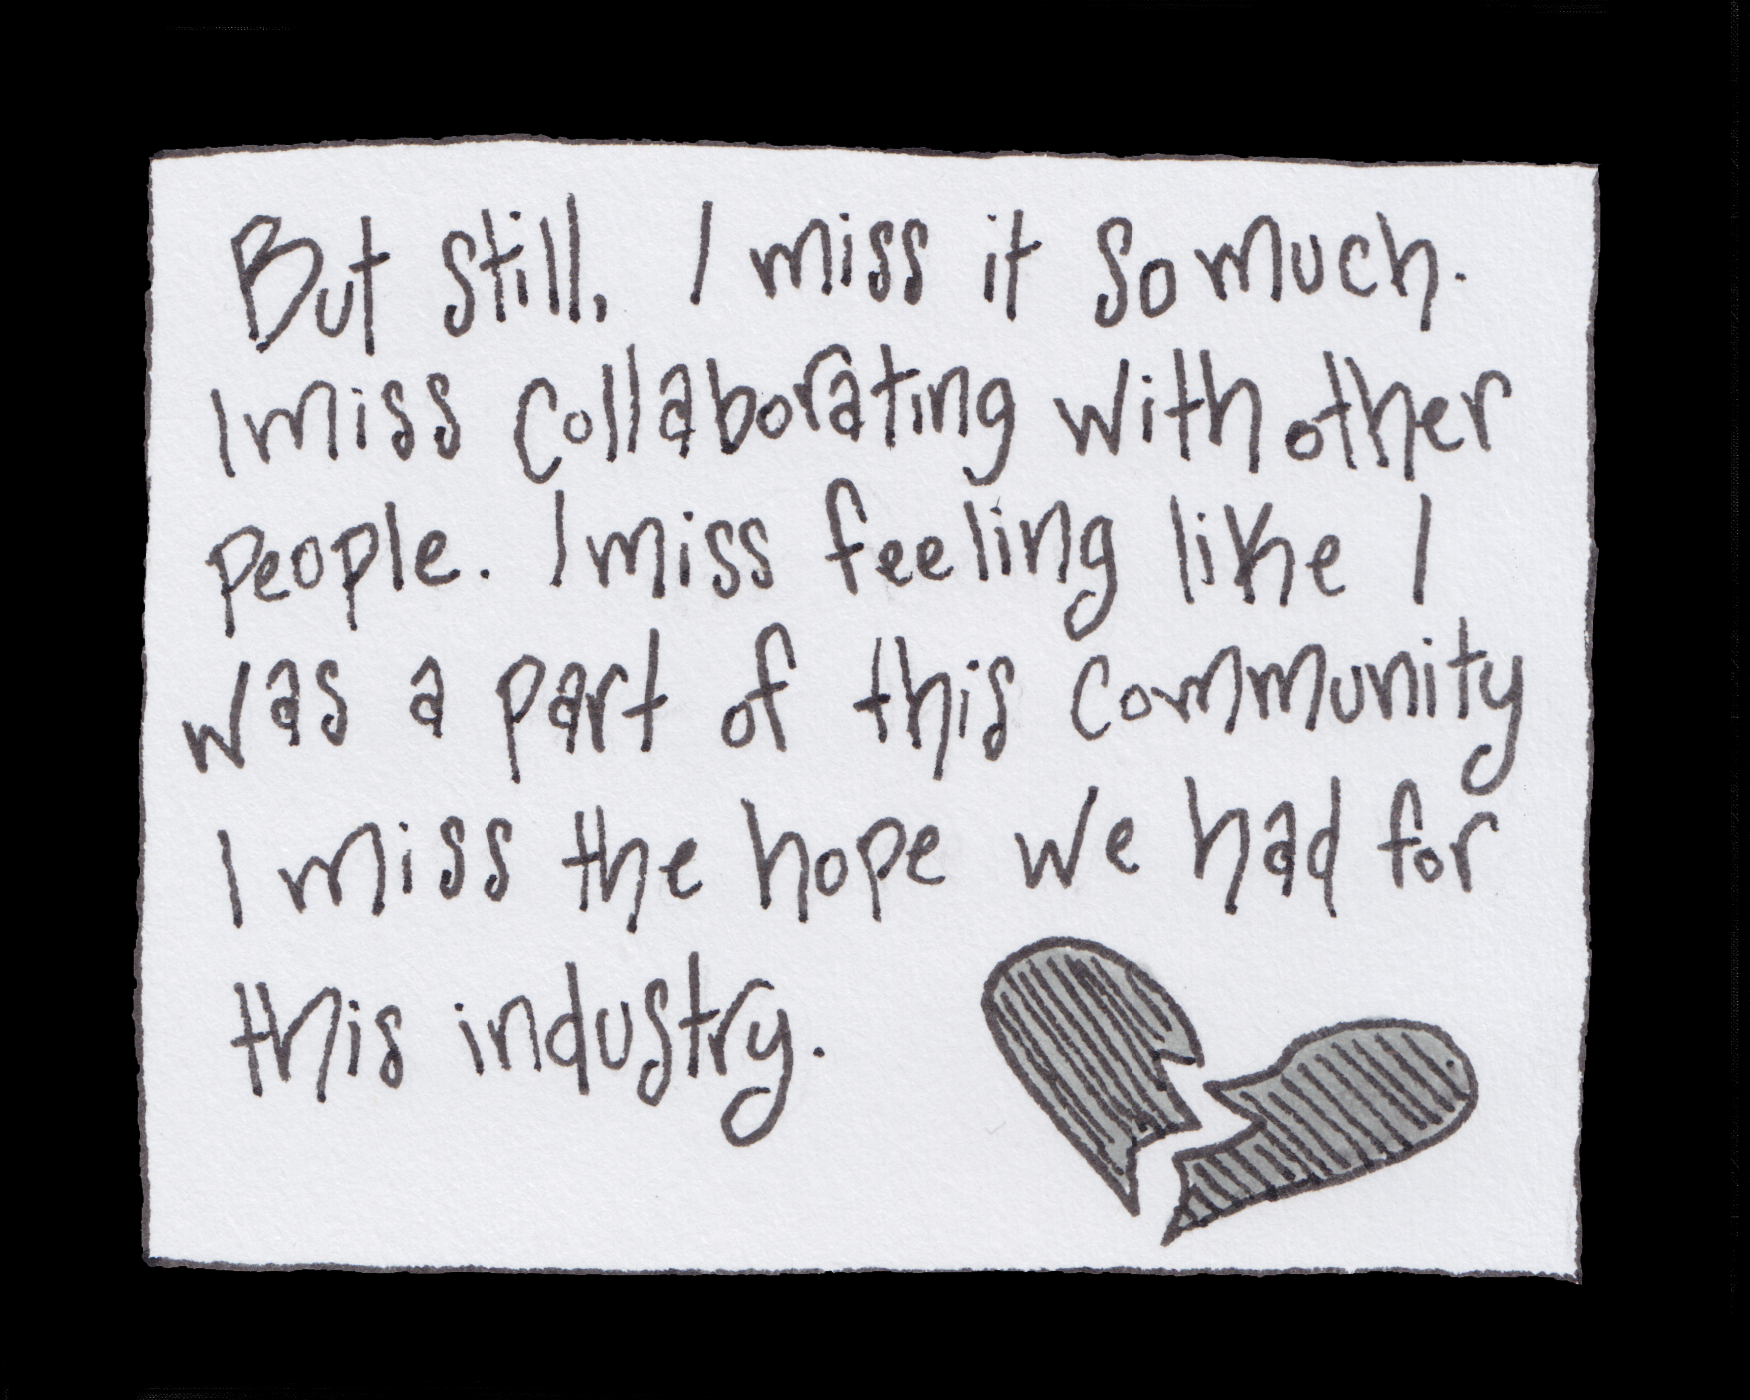 But still, I miss it so much.
I miss collaborating with other
people. I miss feeling like I
was a part of this community
I miss the hope we had for
this industry.